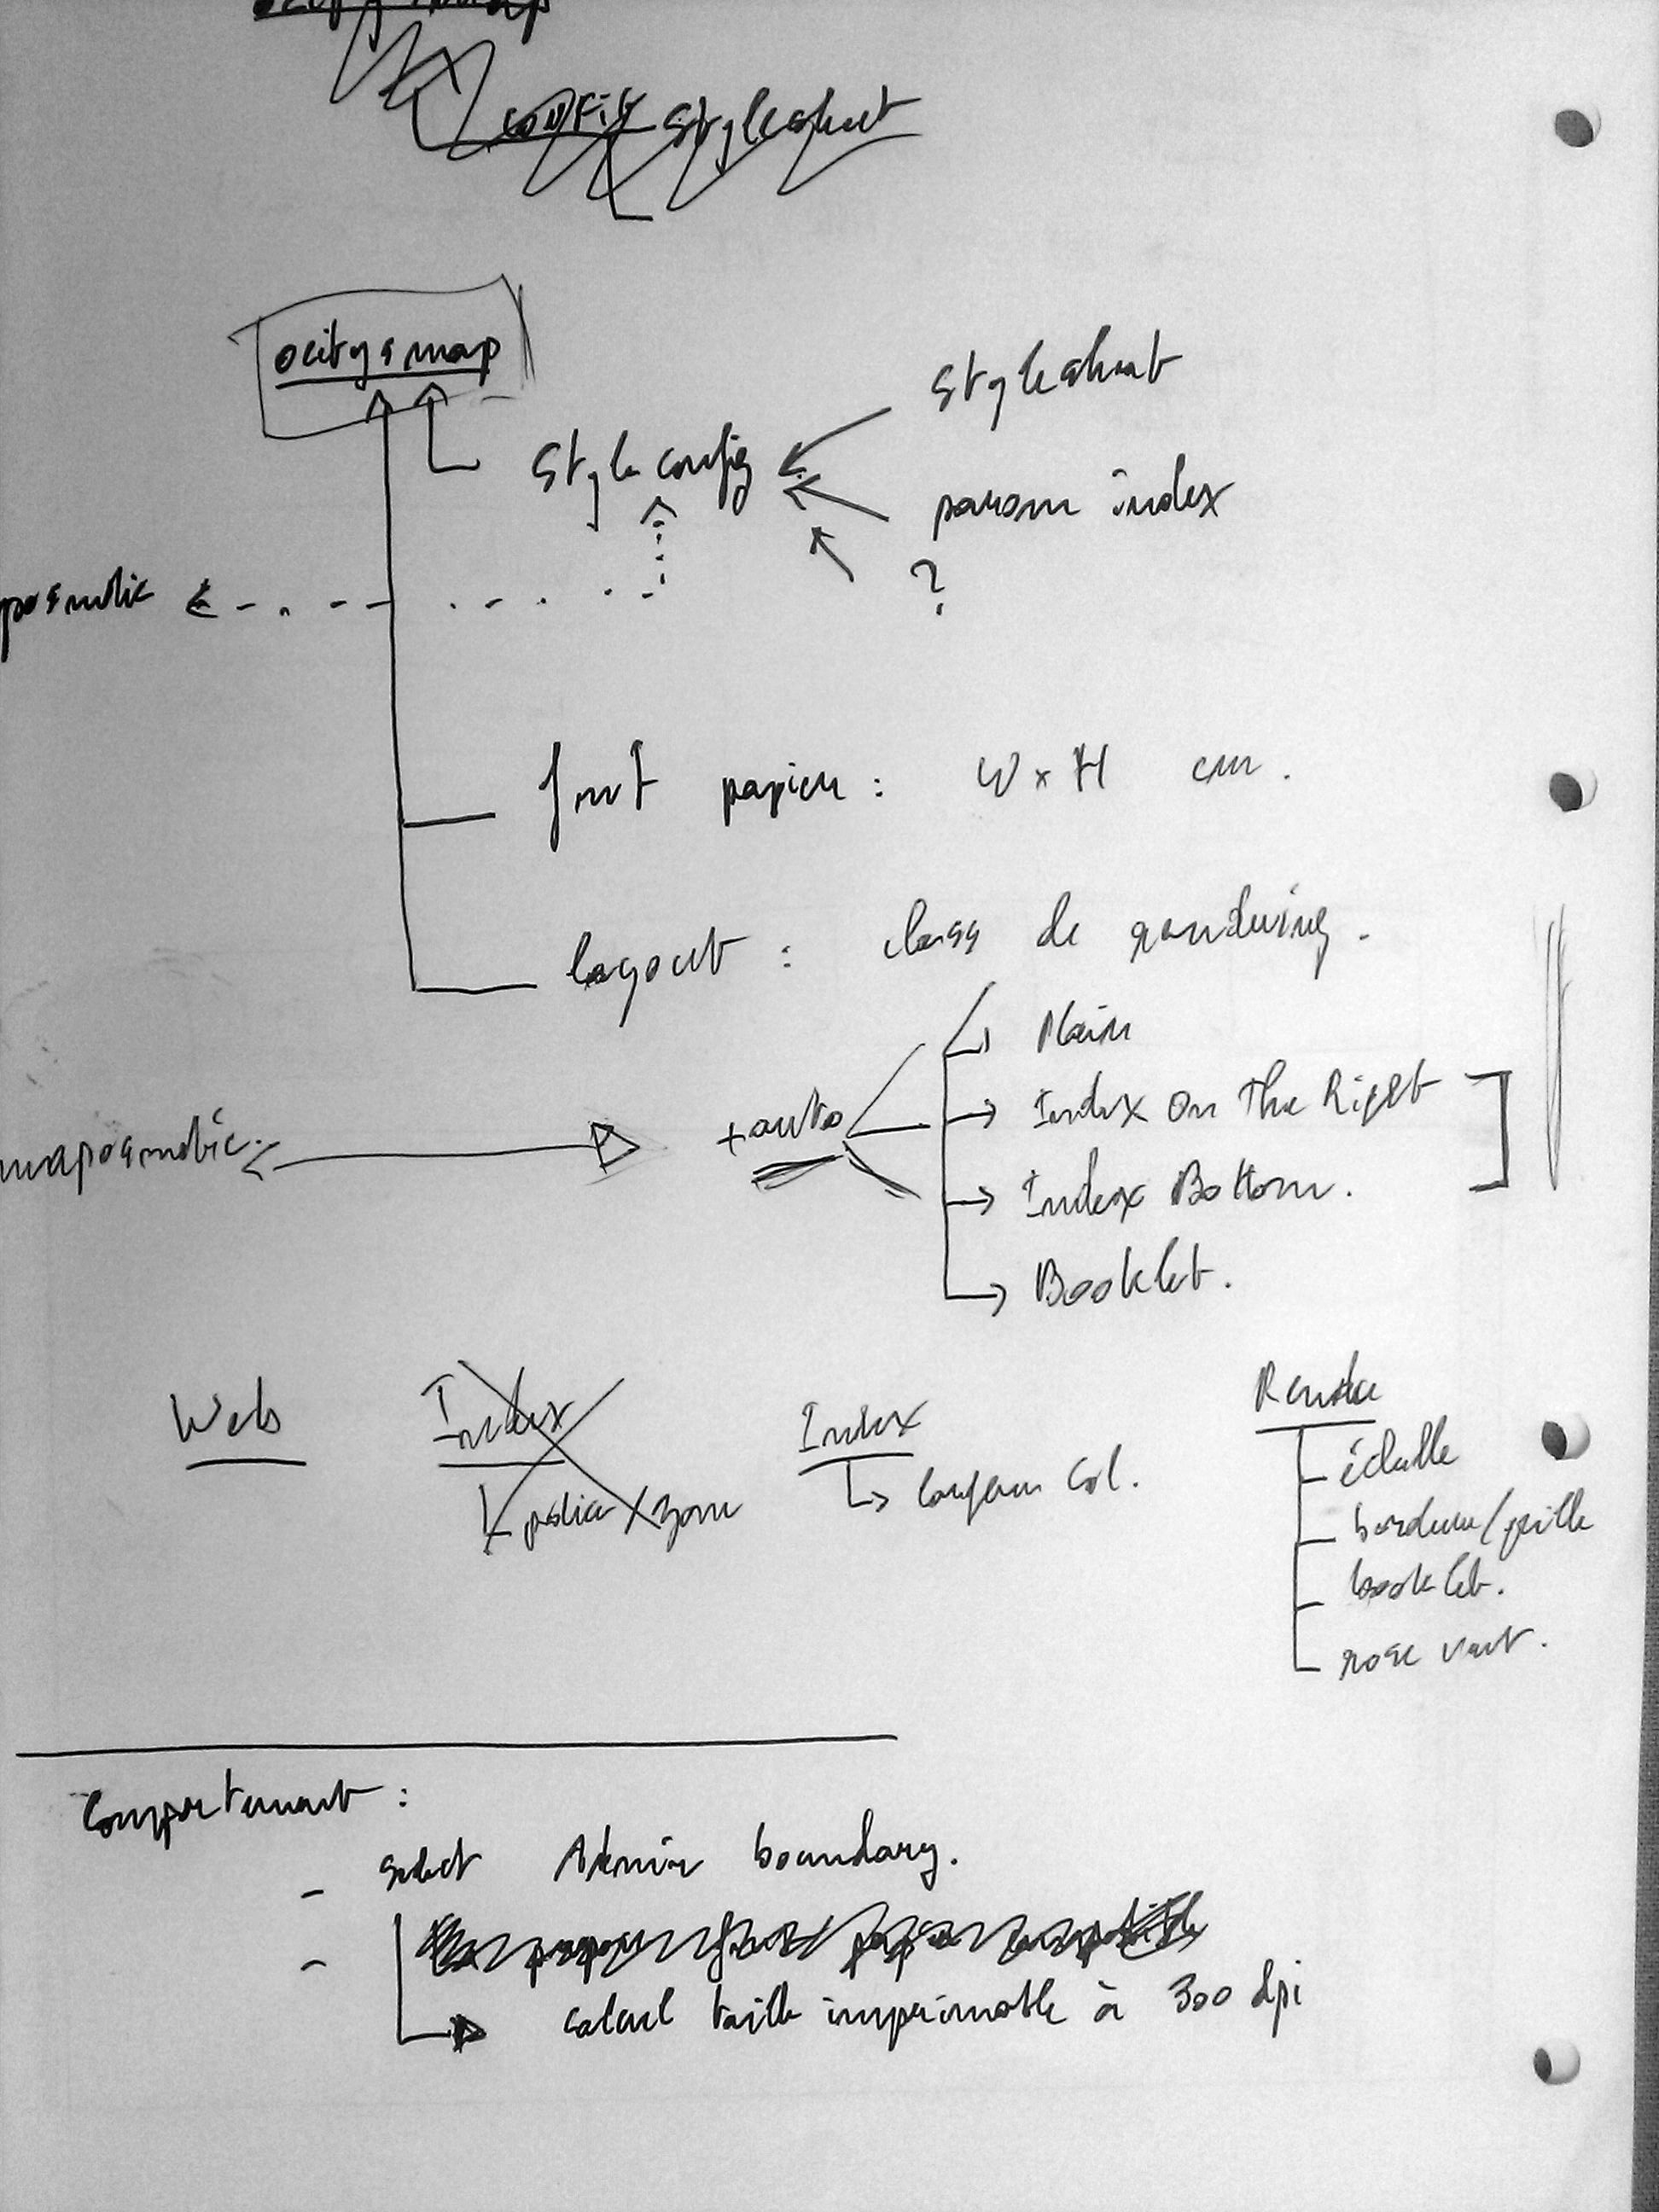 config stylesheet
ocitysmap
Stylesheet
Style config
param index
?
posmatic
fmt papier : W x H cm.
layout : class de rendering.
Plain
+ auto
Index On The Right
maposmatic
Index Bottom.
Booklet.
Web
Index
police x zone
Index
largeur Col.
Render
échelle
bordure/grille
booklet.
rose vent.
Comportement :
- select Admin boundary.
-
calcul taille imprimable à 300 dpi